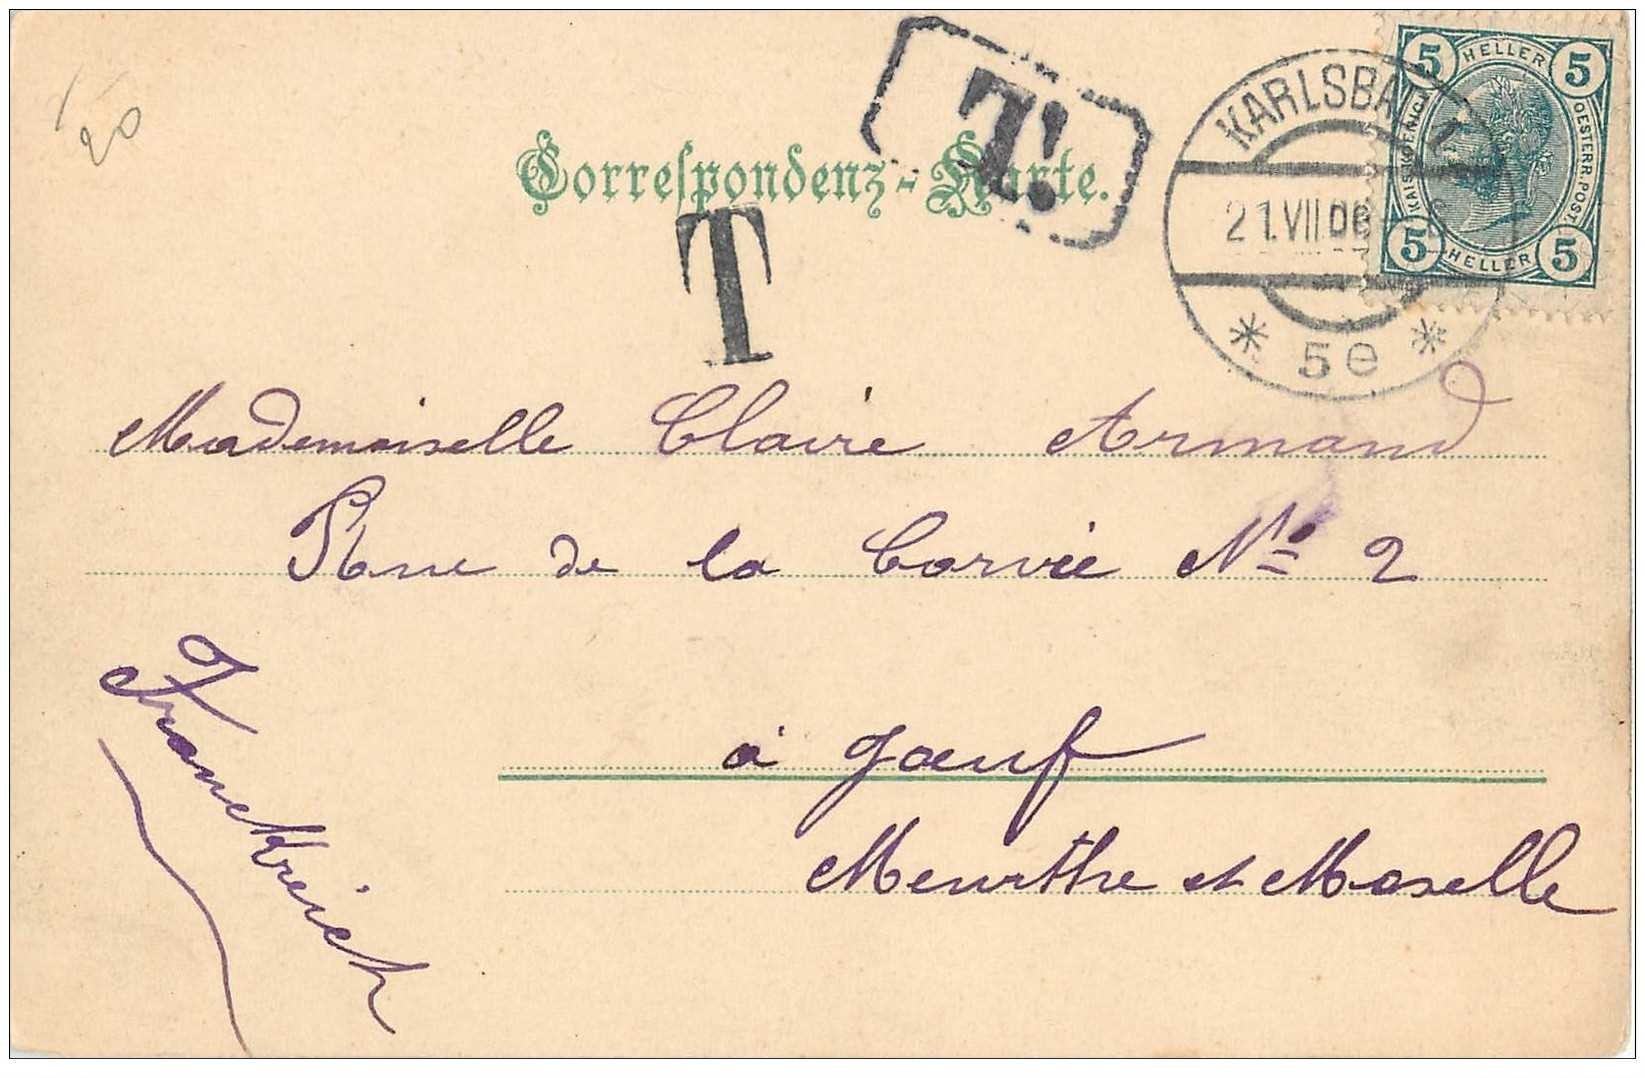 20
T.
5 HELLER 5
KAIS. KOENIGL.
OESTERR. POST.
5 HELLER 5
KARLSBA
21.VII.06
* 5e *
Correspondenz-Karte.
T
Mademoiselle Claire Armand
Rue de la Corvée No 2
à Jœuf
Meurthe et Moselle
Franckreich